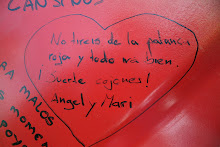 CANSINOS
No tireis de la palanca
roja y todo ira bien.
¡Suerte cojones!
Angel y Mari
PARA MALOS
MOMEN
APOYO